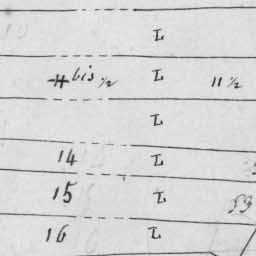 L
bis 1/2 L 11 1/2
L
14 L
15 L 53
16 L